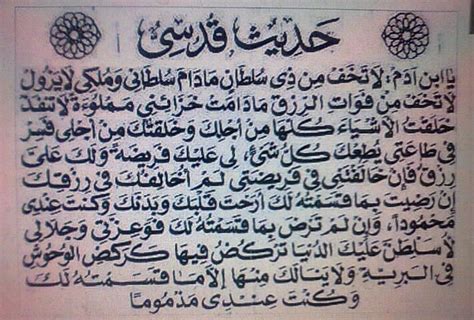 حَدِيثٌ قُدْسِيٌّ
يَا ابنَ آدَمَ: لَا تَخَفْ مِنْ ذِي سُلْطَانٍ مَادَامَ سُلْطَانِي وَمُلْكِي لَا يَزُولُ
لَا تَخَفْ مِنْ فَوَاتِ الرِّزْقِ مَادَامَتْ خَزَائِنِي مَمْلُوءَةً لَا تَنْفَدُ
خَلَقْتُ الْأَشْيَاءَ كُلَّهَا مِنْ أَجْلِكَ وَخَلَقْتُكَ مِنْ أَجْلِي فَسِرْ
فِي طَاعَتِي يُطِعْكَ كُلُّ شَيْءٍ، لِي عَلَيْكَ فَرِيضَةٌ وَلَكَ عَلَيَّ
رِزْقٌ فَإِنْ خَالَفْتَنِي فِي فَرِيضَتِي لَمْ أُخَالِفْكَ فِي رِزْقِكَ
إِنْ رَضِيتَ بِمَا قَسَمْتُهُ لَكَ أَرَحْتُ قَلْبَكَ وَبَدَنَكَ وَكُنْتَ عِنْدِي
مَحْمُوداً، وَإِنْ لَمْ تَرْضَ بِمَا قَسَمْتُهُ لَكَ فَوَعِزَّتِي وَجَلَالِي
لَأُسَلِّطَنَّ عَلَيْكَ الدُّنْيَا تَرْكُضُ فِيهَا كَرَكْضِ الْوُحُوشِ
فِي الْبَرِيَّةِ وَلَا يَنَالُكَ مِنْهَا إِلَّا مَا قَسَمْتُهُ لَكَ
وَكُنْتَ عِنْدِي مَذْمُومًا